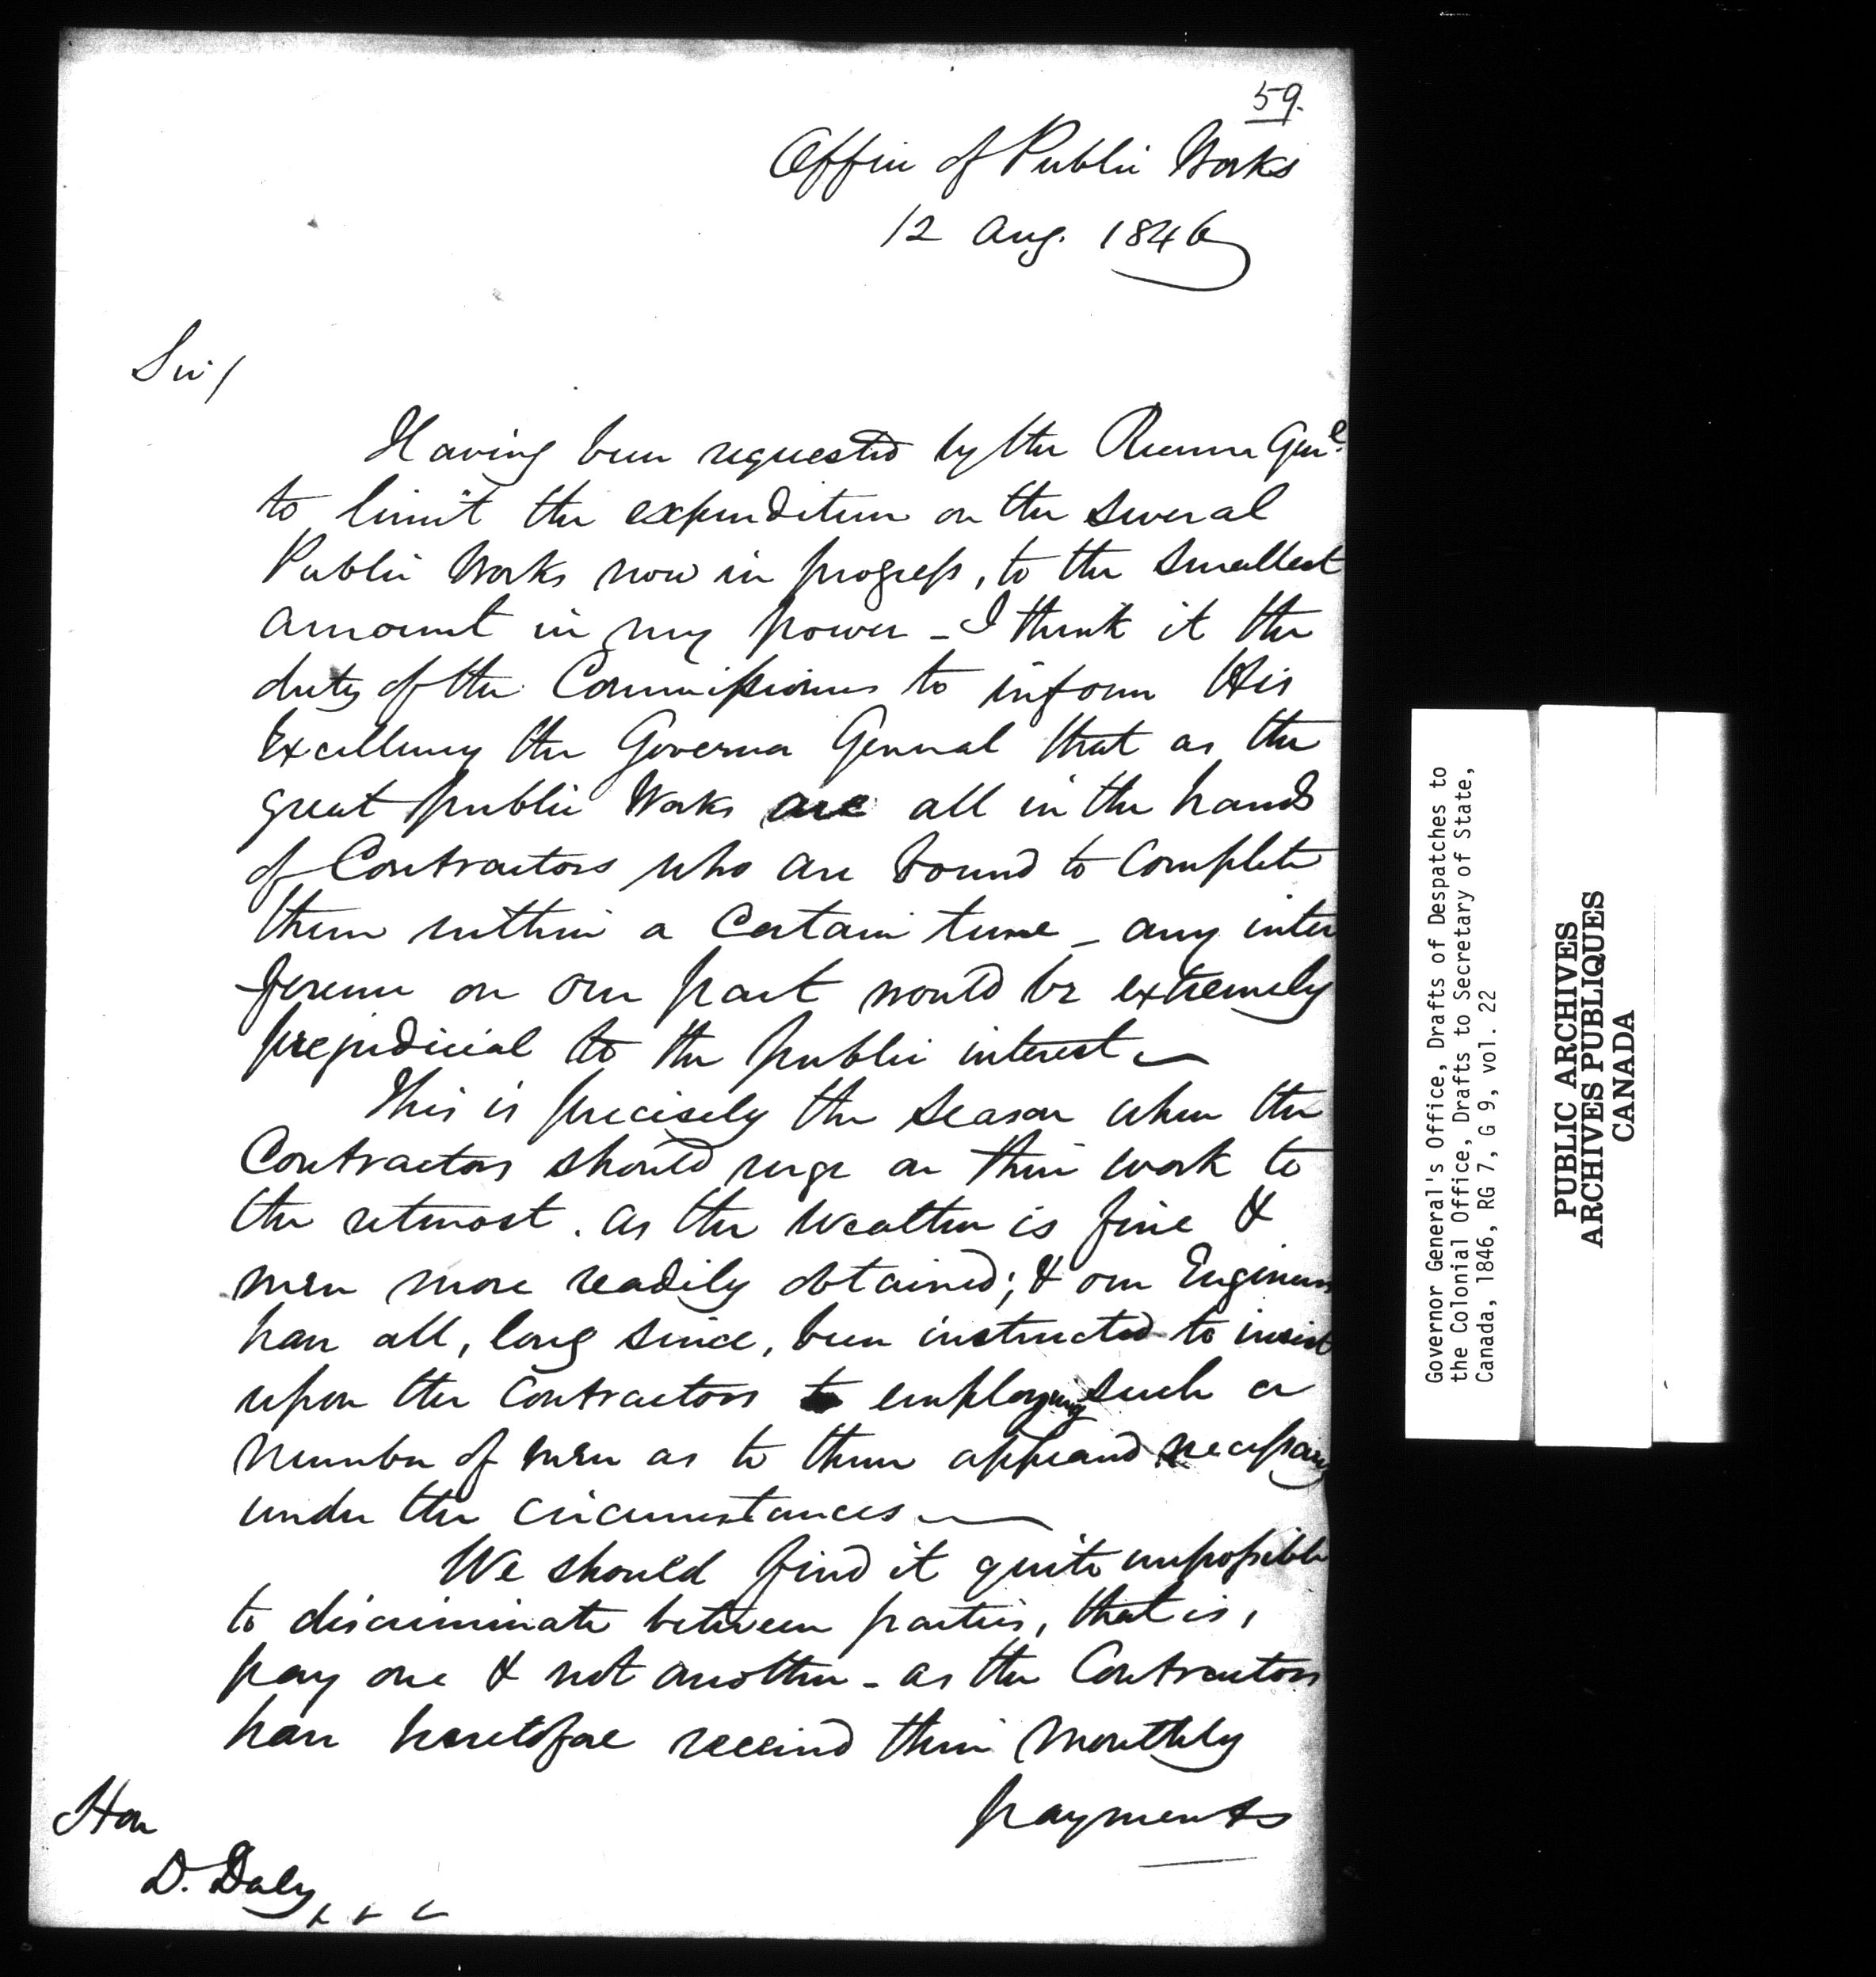 59.
Office of Public Works
12 Aug. 1846
Sir/
Having been requested by the Receiver Genl
to limit the expenditure on the several
Public Works now in progress, to the smallest
amount in my power - I think it the
duty of the Commissioners to inform His
Excellency the Governor General that as the
great public Works are all in the hands
of Contractors who are bound to complete
them within a Certain time - any inter
ference on our part would be extremely
prejudicial to the public interest
This is precisely the season when the
Contractors should urge on their work to
the utmost. as the weather is fine &
men more readily obtained; & our Engineers
have all, long since, been instructed to insist
upon the contractors employing such a
number of men as to them appeared necessary
under the circumstances
We should find it quite impossible
to discriminate between parties, that is,
pay one & not another - as the Contractors
have heretofore received their monthly
payments
Hon
D. Daly
& & &
Governor General's Office, Drafts of Despatches to
the Colonial Office, Drafts to Secretary of State,
Canada, 1846, RG 7, G 9, vol. 22
PUBLIC ARCHIVES
ARCHIVES PUBLIQUES
CANADA